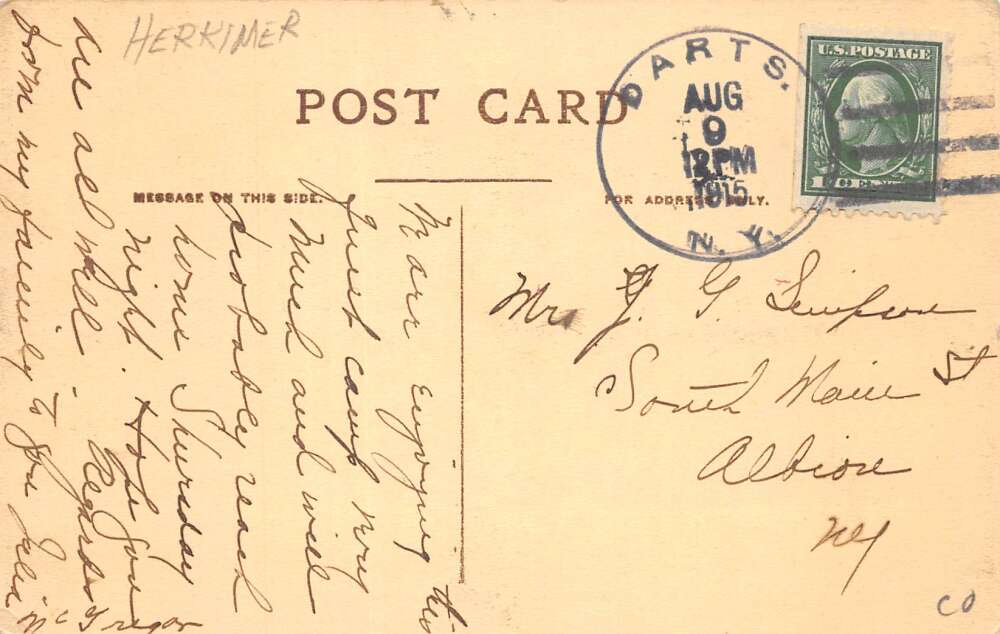 HERKIMER
POST CARD
MESSAGE ON THIS SIDE.
FOR ADDRESS ONLY.
DARTS.
AUG
9
12 PM
1915
N. Y.
U.S. POSTAGE
We are Enjoying this
quiet camp very
much and will
probably reach
home Thursday
night. Hope you
are all well. Regards
from my family to you Julia
McGregor
Mrs J. G. Simpson
South Main St
Albion
NY
CO